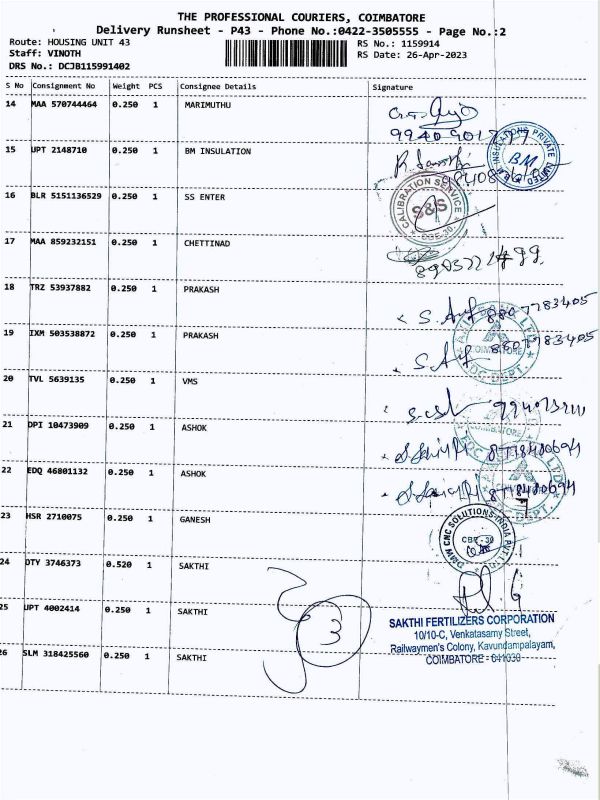 THE PROFESSIONAL COURIERS, COIMBATORE
Delivery Runsheet - P43 - Phone No.:0422-3505555 - Page No.:2
Route: HOUSING UNIT 43 RS No.: 1159914
Staff: VINOTH RS Date: 26-Apr-2023
DRS No.: DCJB115991402
S No Consignment No Weight PCS Consignee Details Signature
14 MAA 570744464 0.250 1 MARIMUTHU
15 UPT 2148710 0.250 1 BM INSULATION
BM
16 BLR 5151136529 0.250 1 SS ENTER
CALIBRATION SERVICE
S&S
CBE-30
17 MAA 859232151 0.250 1 CHETTINAD
18 TRZ 53937882 0.250 1 PRAKASH
S. Arif 8807783405
19 IXM 503538872 0.250 1 PRAKASH
S. Arif 8807783405
COIMBATORE
20 TVL 5639135 0.250 1 VMS
21 DPI 10473909 0.250 1 ASHOK
8778480694
22 EDQ 46801132 0.250 1 ASHOK
8778480694
23 HSR 2710075 0.250 1 GANESH
DMW CNC SOLUTIONS INDIA PVT LTD
CBE-30
24 DTY 3746373 0.520 1 SAKTHI
25 UPT 4002414 0.250 1 SAKTHI
3
SAKTHI FERTILIZERS CORPORATION
10/10-C, Venkatasamy Street,
Railwaymen's Colony, Kavundampalayam,
COIMBATORE - 641030
26 SLM 318425560 0.250 1 SAKTHI